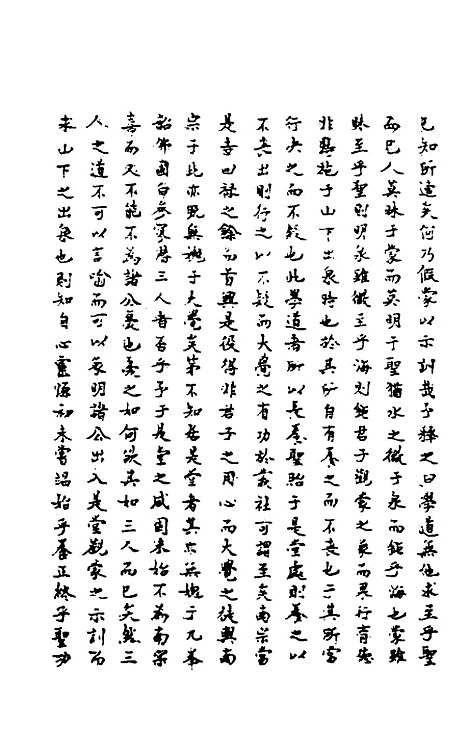 已知所達矣何乃假蒙以示訓哉予釋之曰學道無他求至乎聖
而已人莫昧于蒙而莫明于聖猶水之微于泉而鉅乎海也蒙雖
昧至乎聖則明泉雖微至乎海則鉅君子觀蒙之象而果行育德
非特施于山下出泉時也於其所自有養之而不喪也于其所當
行失之而不疑也此學道者所以是養聖貽于是堂處則養之以
不喪出則行之以不疑而大覺之有功於叢社可謂至矣南宗當
是吉田祿之餘而首興是役得非君子之用心而大覺之徒與南
宗于此亦既無愧于大覺矣第不知登是堂者其亦無愧于九峯
韶佛國白參寥潛三人者否乎予于是堂之成固未始不為南宗
喜而又不能不為諸公憂也憂之如何欲其如三人而已矣然三
人之道不可以言喻而可以象明諸公出入是堂觀蒙之示訓而
求山下之出泉也則知自心靈源初未嘗涸始乎養正終乎聖功